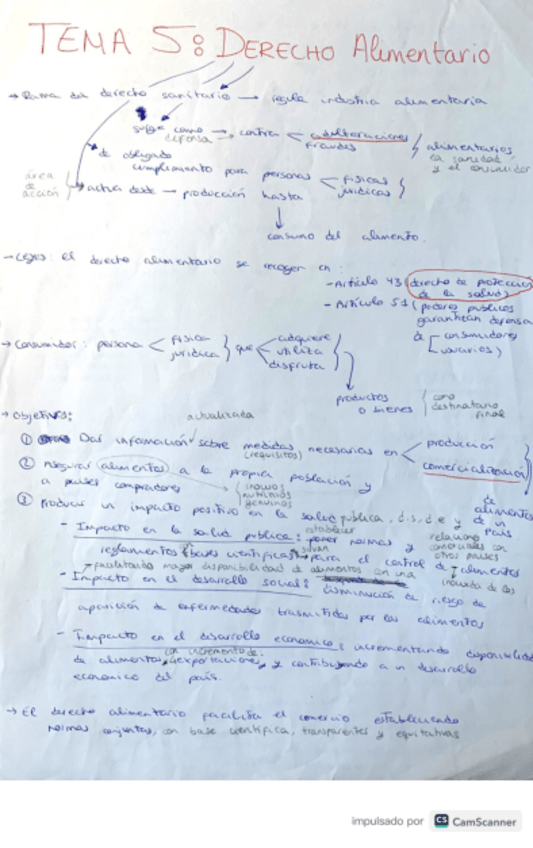 TEMA 5: DERECHO Alimentario
→ Rama del derecho sanitario → regula industria alimentaria
surge como defensa → contra < adulteraciones fraudes } alimentarios, la sanidad y el consumidor
de obligado cumplimiento para personas < físicas jurídicas }
área de acción } actua desde → producción hasta
↓
consumo del alimento.
→ Leyes: el derecho alimentario se recogen en:
- Artículo 43 (derecho de protección de la salud)
- Artículo 51 (poderes públicos garantizan defensa de [consumidores usuarios)
→ Consumidor: persona < física jurídica } que < adquiere utiliza disfruta
productos o bienes { como destinatario final
→ Objetivos:
① Dar información actualizada sobre medidas (requisitos) necesarias en < producción comercialización } de alimentos
② Asegurar alimentos a la propia población y
a países compradores
{ inocuos nutritivos genuinos
③ Producir un impacto positivo en la salud pública, d.s, d.e y de un país
- Impacto en la salud pública: establecer normas y
reglamentos (bases científicas) sirvan para el control de alimentos
→ facilitando mayor disponibilidad de alimentos en una
relaciones comerciales con otros países
- Impacto en el desarrollo social: disminución de riesgo de
aparición de enfermedades trasmitidas por los alimentos
- Impacto en el desarrollo economico: incrementando disponibilidad
de alimentos, con incremento de exportaciones, y contribuyendo a un desarrollo
economico del país.
→ El derecho alimentario facilita el comercio estableciendo
normas conjuntas, con base científica, transparentes y equitativas
impulsado por CS CamScanner